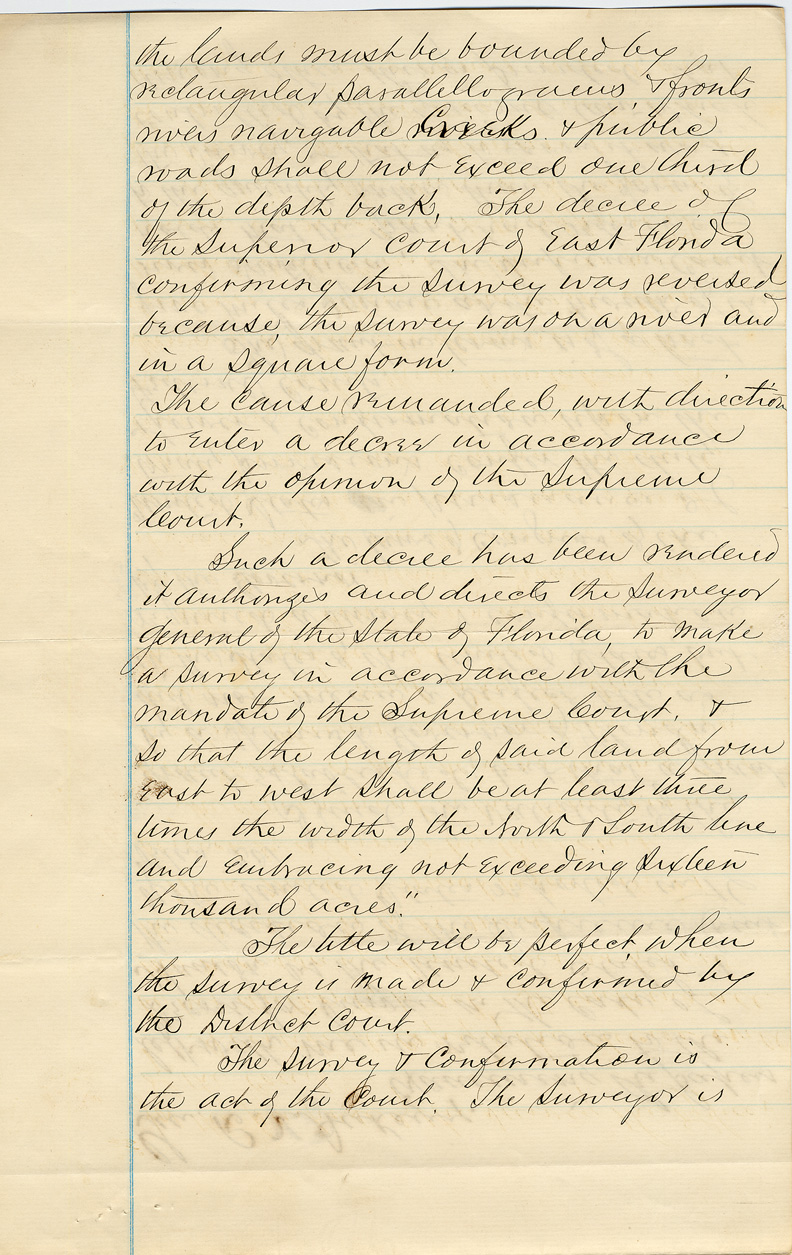 the lands must be bounded by
rectangular parallellograms & fronts
rivers navigable Creeks & public
roads shall not exceed one third
of the depth back. The decree of
the Superior Court of East Florida
confirming the survey was reversed
because, the survey was on a river and
in a square form.
The cause remanded, with direction
to enter a decree in accordance
with the opinion of the Supreme
Court.
Such a decree has been rendered
it authorizes and directs the Surveyor
general of the State of Florida, to make
a survey in accordance with the
mandate of the Supreme Court, &
so that the length of said land from
East to west shall be at least three
times the width of the North & South line
and Embracing not Exceeding Sixteen
thousand acres."
The title will be perfect when
the survey is made & confirmed by
the District Court.
The survey & Confirmation is
the act of the Court. The Surveyor is